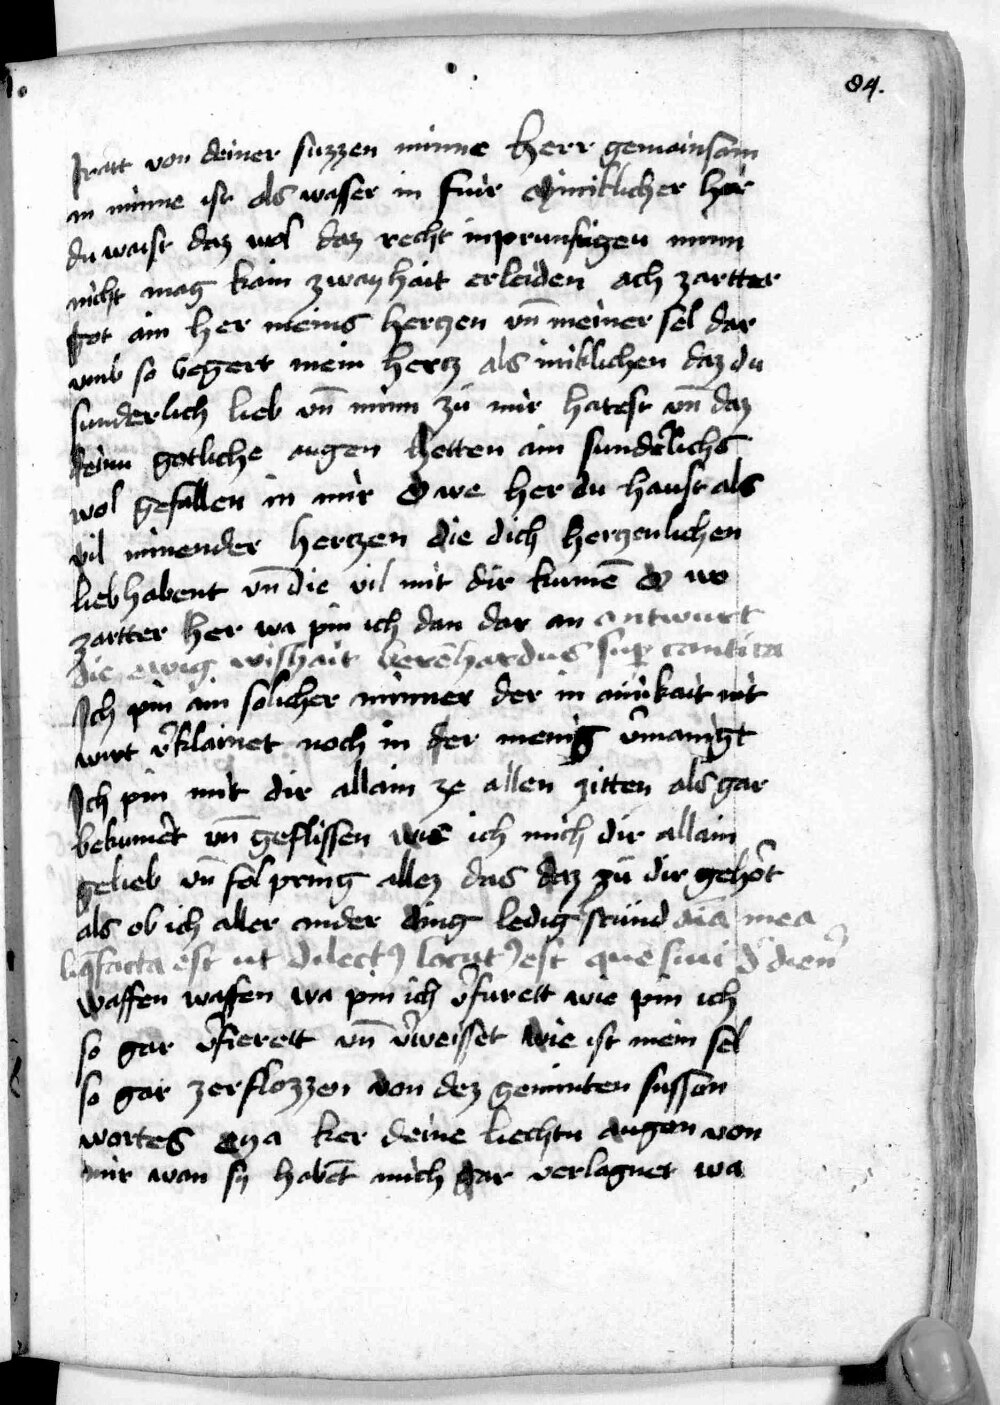 84.
Iratt von deiner suzzen minne herr gemainsam
in minne ist als wasser in fuir Miniklicher her
du waist daz wol daz recht inprunstigeu minn
nicht mag kain zwayhait erleiden ach zartter
got ain her meins hertzen vn̄ meiner sel dar
vmb so begert mein hertz als iniklichen daz du
sunderlich lieb vn̄ minn zů mir hatest vn̄ daz
deinu gotliche augen hetten ain sunderlichs
wol gefallen in mir O we her du haust als
vil minender hertzen die dich hertzenlichen
lieb habent vn̄ die vil mit dir kumē O we
zartter her wa pin ich dan dar an antwurt
die ewig wishait berēhardus sup cantica
Ich pin ain solicher minner der in ainikait nit
wirt v̄klainet noch in der menig v̄manigt
Ich pin mit dir allain ze allen zitten als gar
bekumert vn̄ geflissen wie ich mich dir allain
gelieb vn̄ fol pring allez das daz zů dir gehört
als ob ich aller ander ding ledig stůnd aīa mea
liqfacta est ut dilectꝰ locutꝰ est
waffen waffen wa pin ich v̄furett wie pin ich
so gar v̄fierett vn̄ v̄weisset wie ist mein sel
so gar zerflozzen von dez geminten sussen
wortes Eya ker deine liechtn augen von
mir wan sy habēt mich gar verlagnet wa